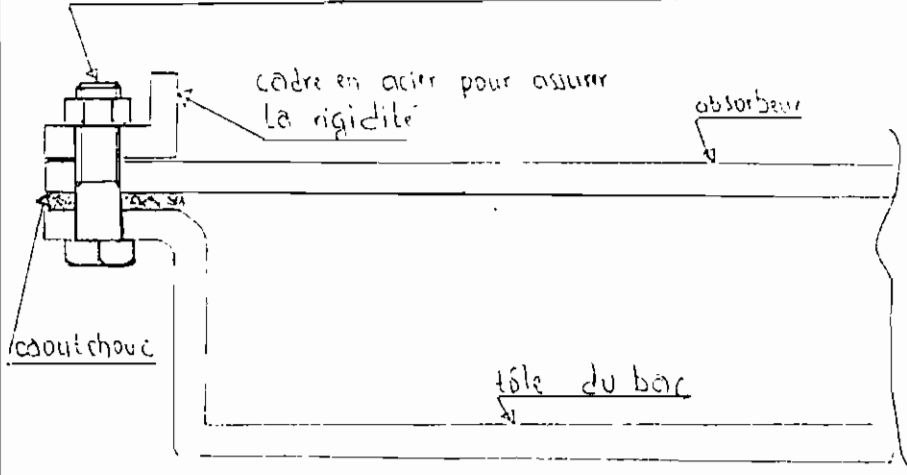 cadre en acier pour assurer
la rigidité
absorbeur
caoutchouc
tôle du bac